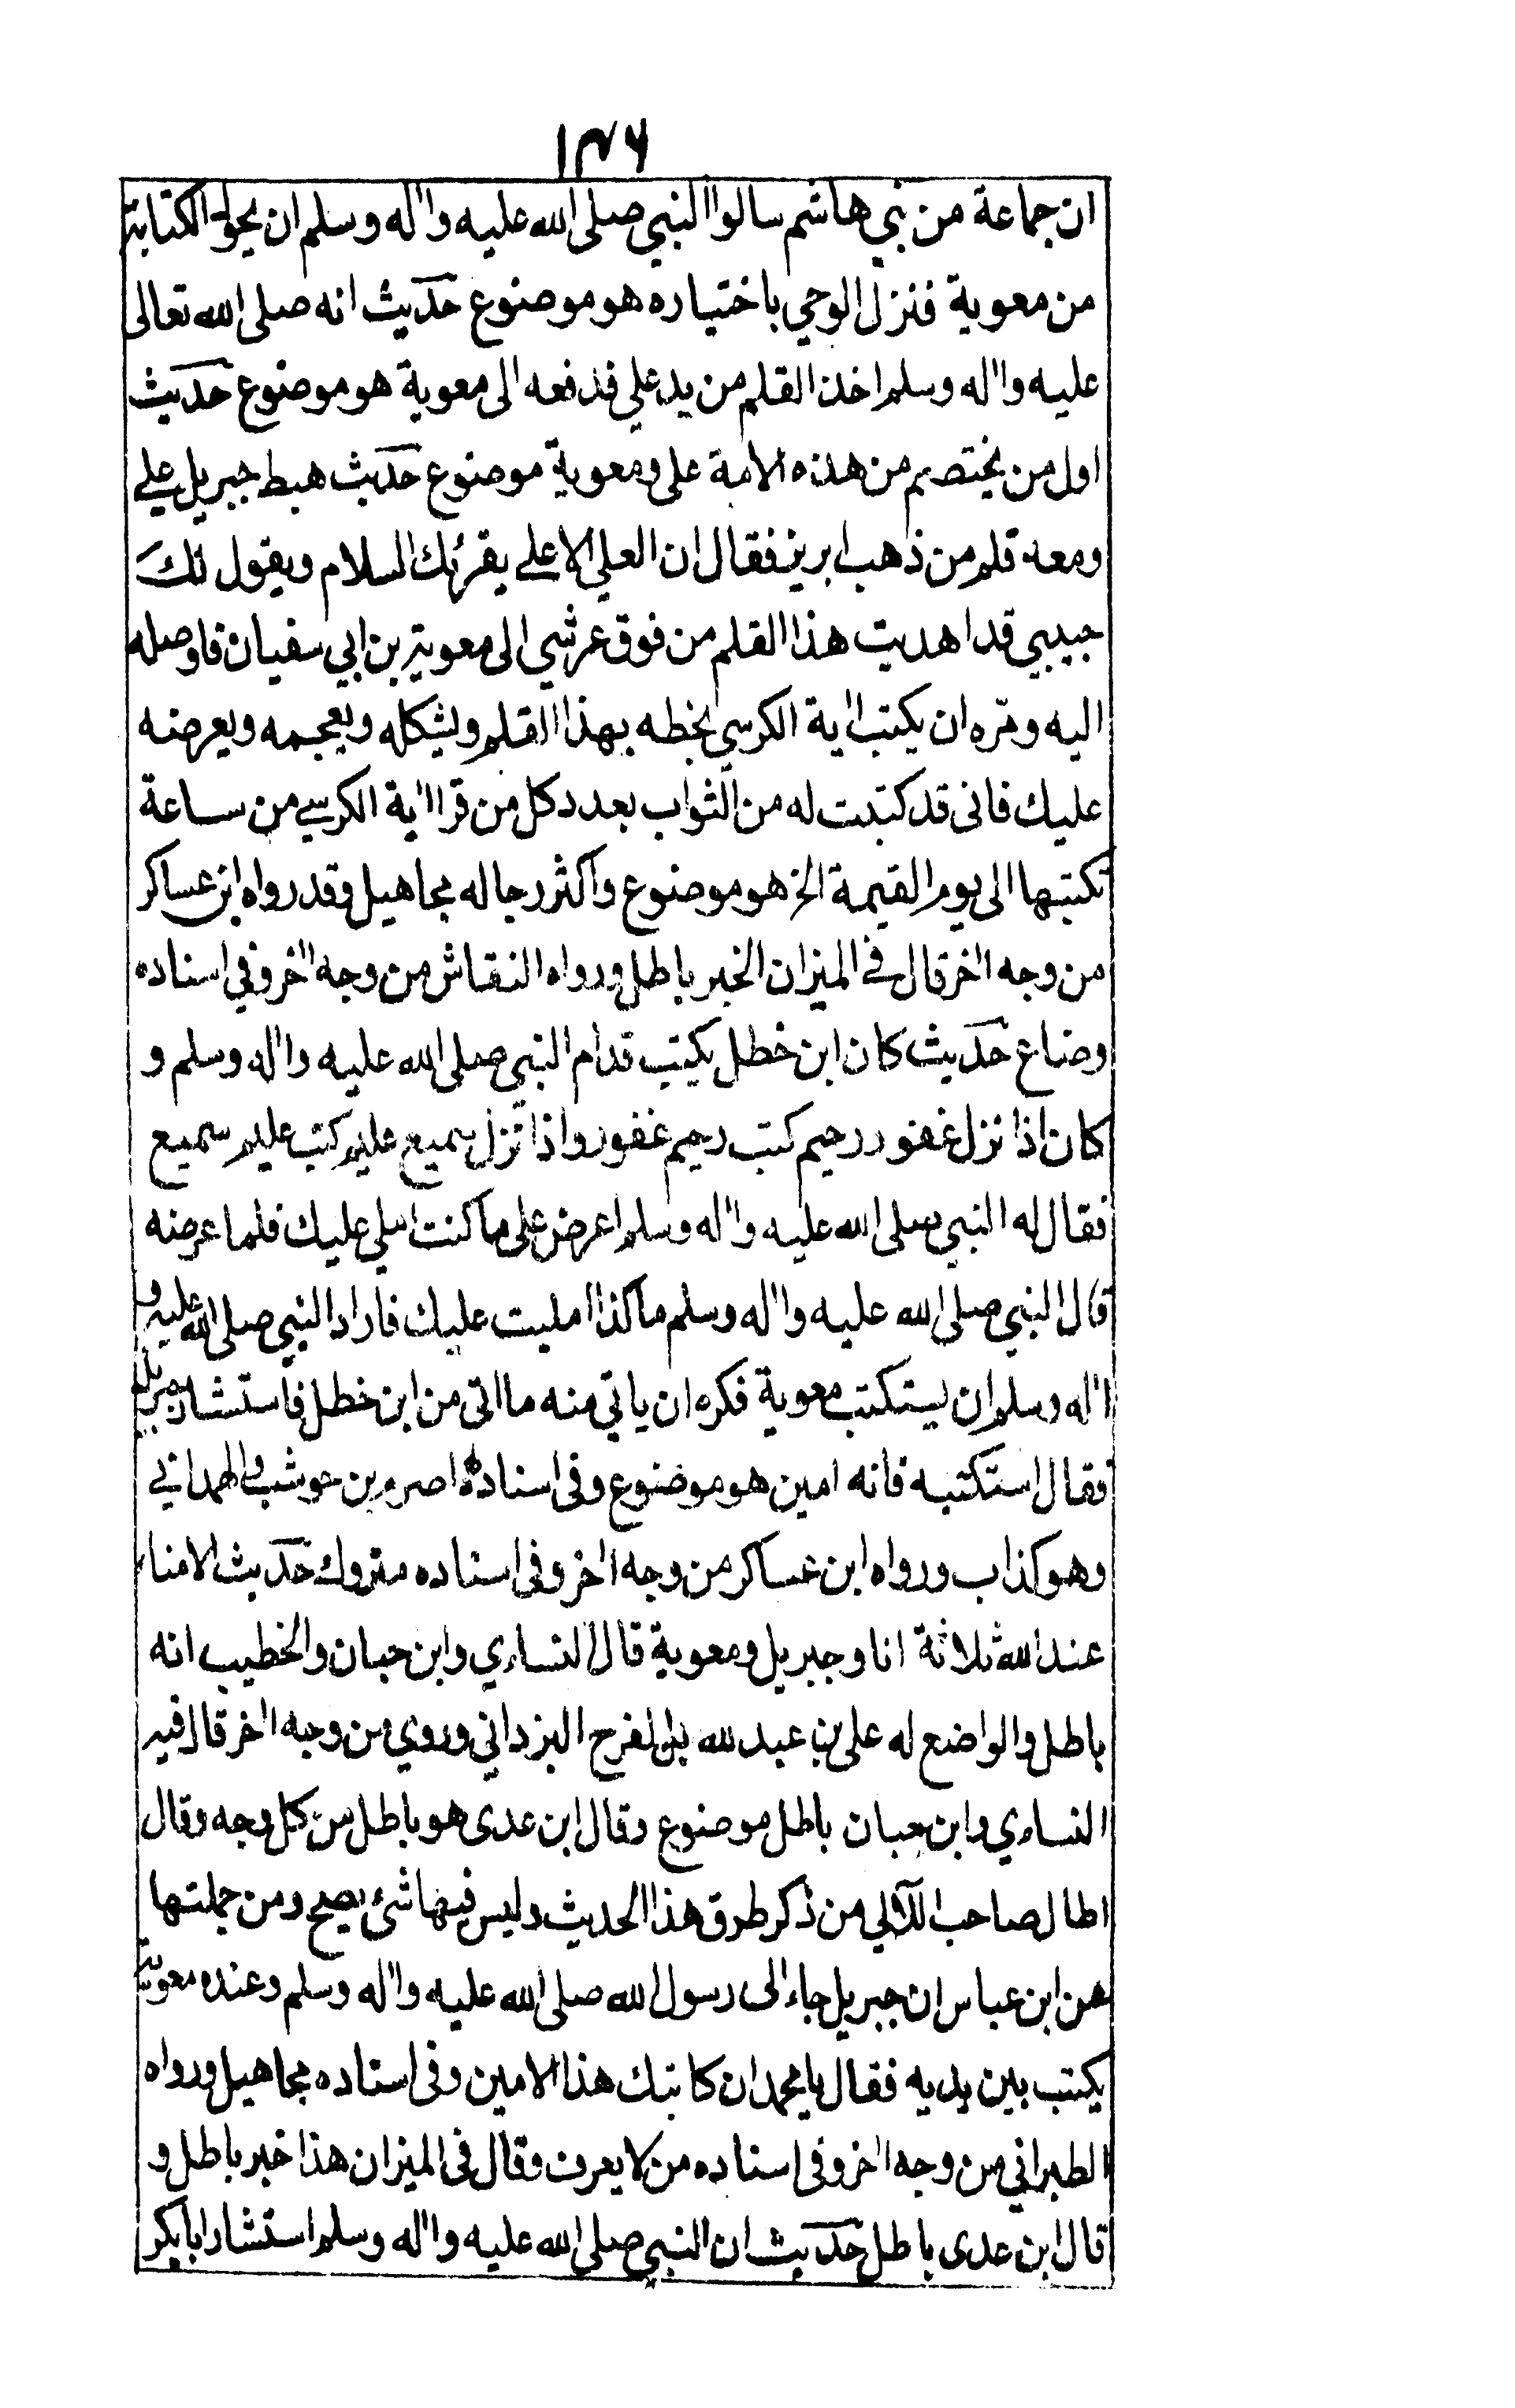 ١٣٦
ان جماعة من بني هاشم سالوا النبي صلى الله عليه واٰله وسلم ان يحول الكتابة
من معوية فنزل الوحي باختياره هو موضوع حديث انه صلى الله تعالى
عليه واٰله وسلم اخذ القلم من يد علي فدفعه الى معوية هو موضوع حديث
اول من يختصم من هذه الامة على ومعوية موضوع حديث هبط جبريل علي
ومعه قلم من ذهب ابريز فقال ان العلي الاعلے يقرئك السلام ويقول لك
حبيبي قد اهديت هذا القلم من فوق عرشي الى معوية بن ابي سفيان فاوصله
اليه ومّره ان يكتب اٰية الكرسي بخطه بهذا القلم ويشكله ويعجمه ويعرضه
عليك فانى قد كتبت له من الثواب بعدد كل من قرا اٰية الكرسي من ساعة
تكتبها الى يوم القيمة الخ هو موضوع واكثر رجاله مجاهيل وقد رواه ابن عساكر
من وجه اٰخر قال في الميزان الخبر باطل ورواه النقاش من وجه اٰخر وفي اسناده
وضاع حديث كان ابن خطل يكتب قدام النبي صلى الله عليه واٰله وسلم و
كان اذا نزل غفور رحيم كتب رحيم غفور واذا نزل سميع عليم كتب عليم سميع
فقال له النبي صلى الله عليه واٰله وسلم اعرض على ما كنت املي عليك فلما عرضه
قال النبي صلى الله عليه واٰله وسلم ما كذا امليت عليك فاراد النبي صلى الله عليه و
اٰله وسلم ان يستكتب معوية فكره ان ياتي منه ما اتى من ابن خطل فاستشار جبريل
فقال استكتبه فانه امين هو موضوع وفى اسناده اصرم بن حوشب الهمداني
وهو كذاب ورواه ابن عساكر من وجه اٰخر وفى اسناده متروك حديث الامناء
عند الله ثلاثة انا وجبريل ومعوية قال النساءي وابن حبان والخطيب انه
باطل والواضع له على بن عبد الله بن الفرح البزداني وروي من وجه اٰخر قال فيه
النساءي وابن حبان باطل موضوع وقال ابن عدى هو باطل من كل وجه وقال
اطال صاحب اللآلي من ذكر طرق هذا الحديث وليس فيها شئ يصح ومن جملتها
عن ابن عباس ان جبريل جاء الى رسول الله صلى الله عليه واٰله وسلم وعنده معوية
يكتب بين يديه فقال يا محمد ان كاتبك هذا الامين وفى اسناده مجاهيل ورواه
الطبراني من وجه اٰخر وفى اسناده من لا يعرف وقال فى الميزان هذا خبر باطل و
قال ابن عدى باطل حديث ان النبي صلى الله عليه واٰله وسلم استشار ابا بكر